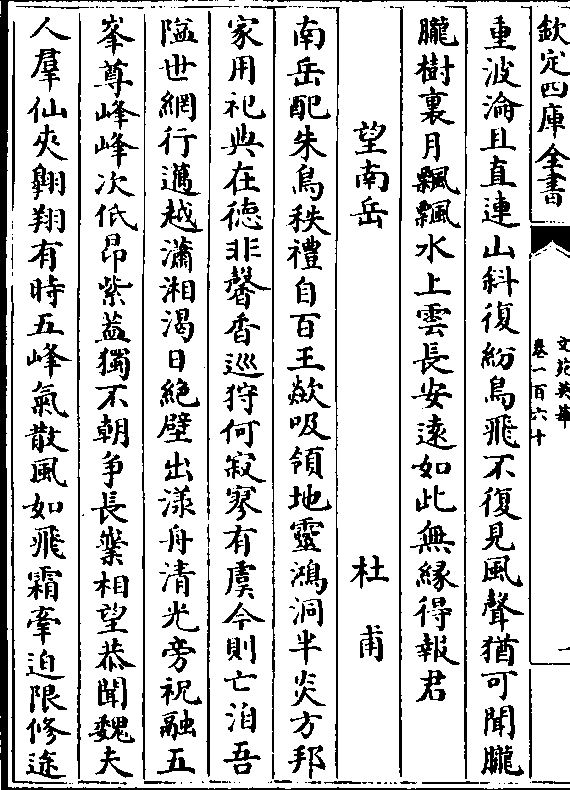 欽定四庫全書
文苑英華
卷一百六十
重波淪且直連山斜復紛鳥飛不復見風聲猶可聞朧
朧樹裏月飄飄水上雲長安遠如此無緣得報君
望南岳
杜甫
南岳配朱鳥秩禮自百王歘吸領地靈鴻洞半炎方邦
家用祀典在德非馨香巡狩何寂寥有虞今則亡洎吾
隘世網行邁越瀟湘渴日絶壁出漾舟清光旁祝融五
峯尊峰峰次低昂紫蓋獨不朝爭長嶪相望恭聞魏夫
人羣仙夾翺翔有時五峰氣散風如飛霜牽迫限修途